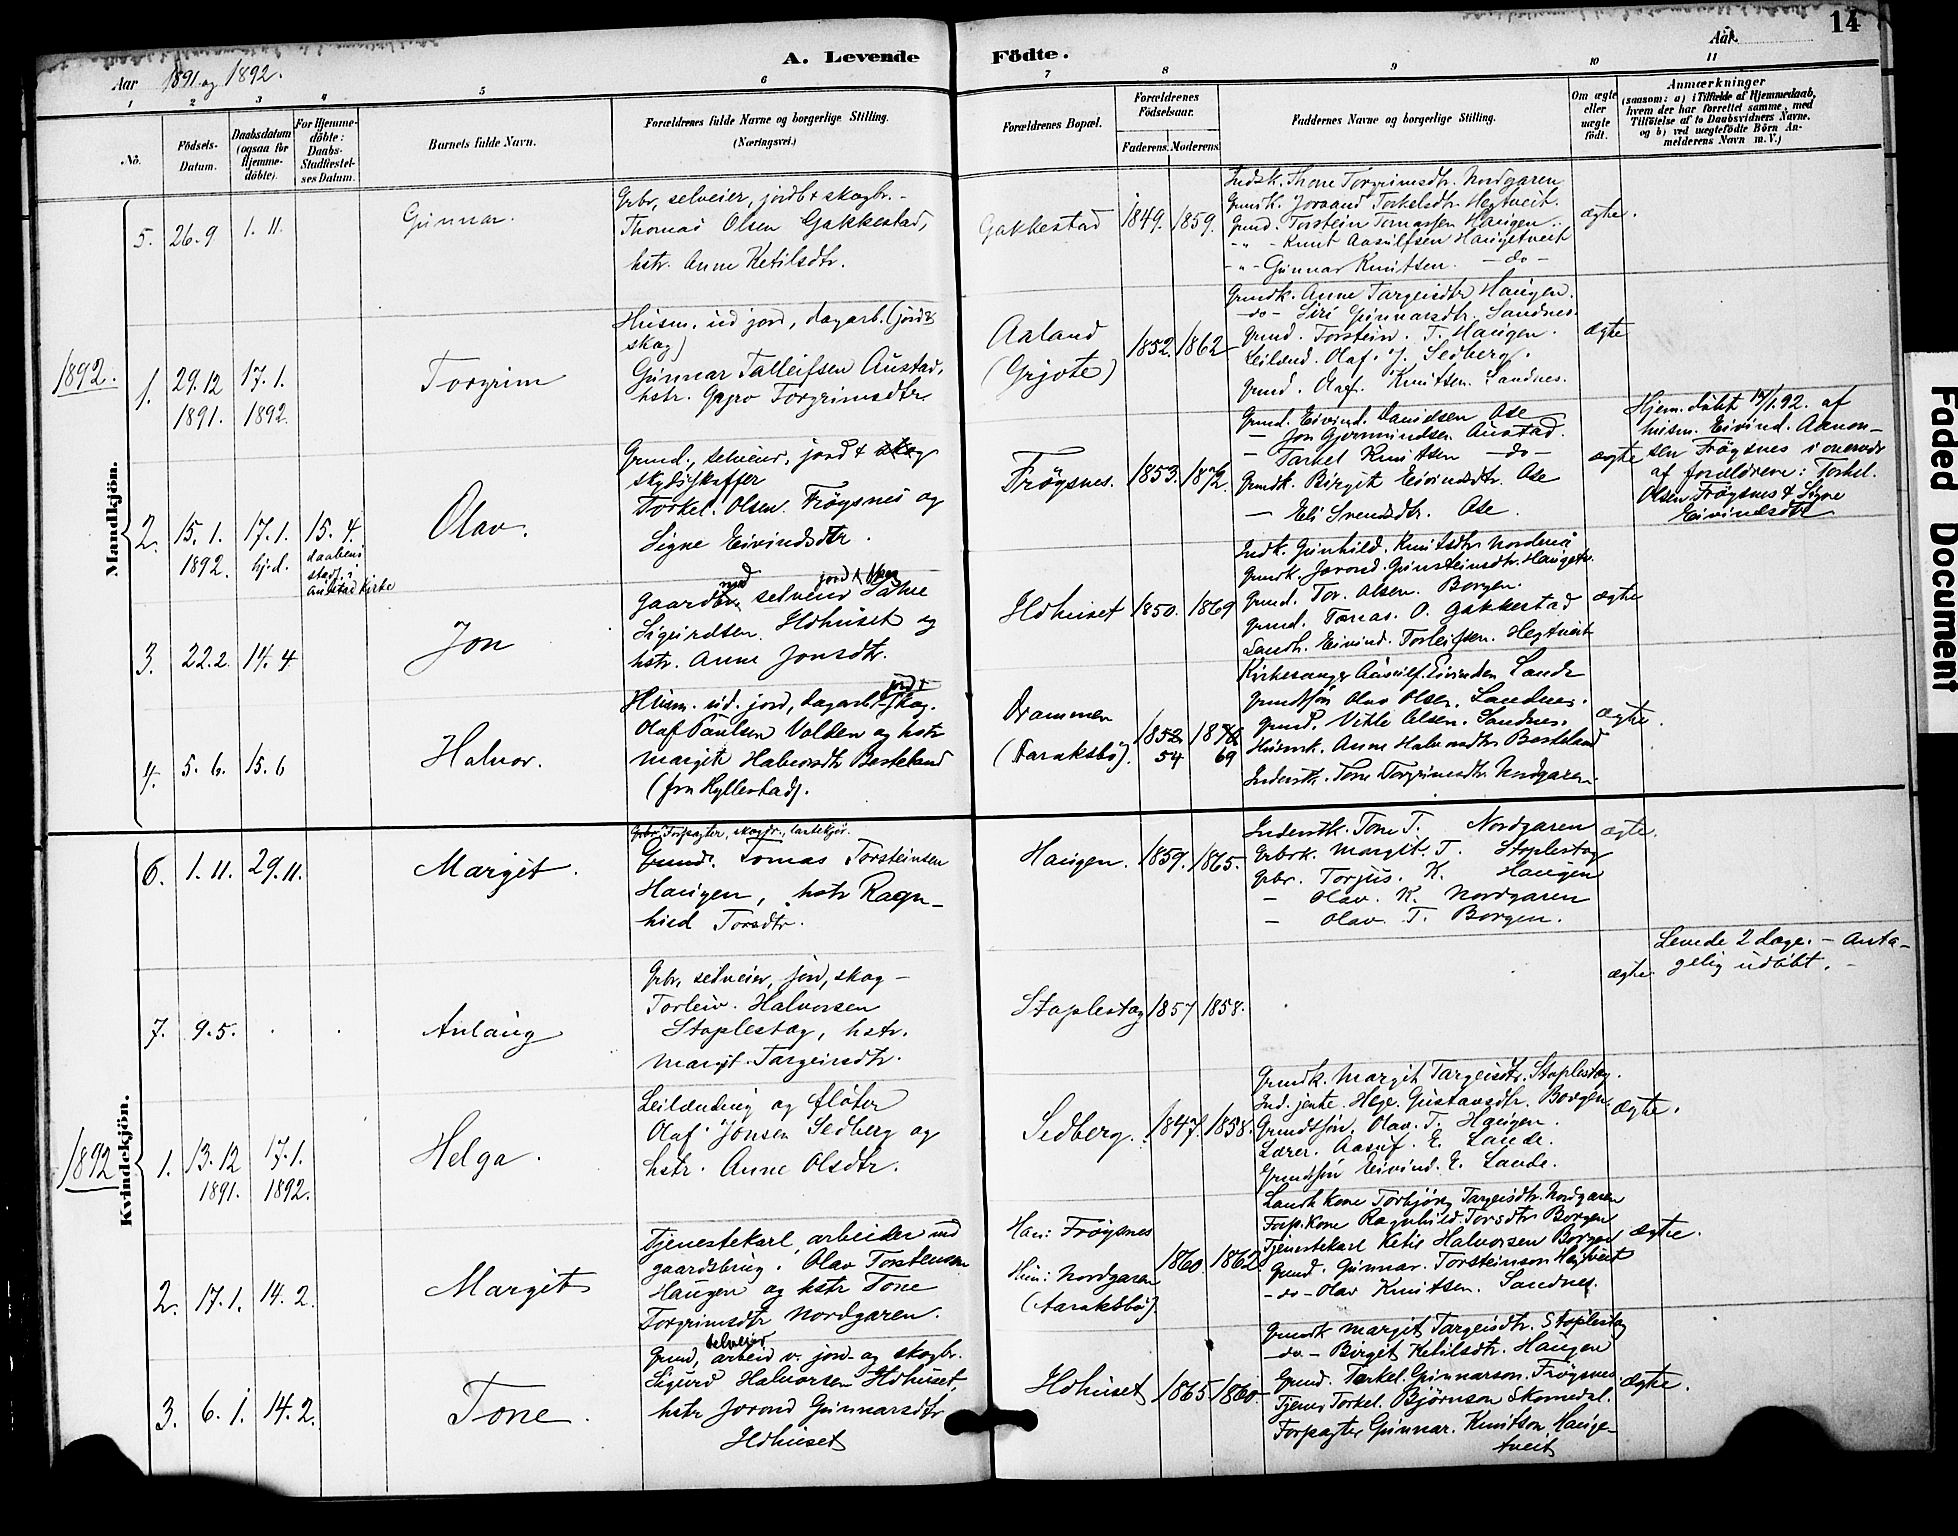 14
A. Levende Födte.
Aar 1891 og 1892.
Aar
1 2 3 4 5 6 7 8 9 10 11
No.
Födsels-
Datum.
Daabsdatum
(ogsaa for
Hjemme-
döbte).
For Hjemme-
döbte:
Daabs-
Stadfæstel-
ses Datum.
Barnets fulde Navn.
Forældrenes fulde Navne og borgerlige Stilling.
(Næringsvei.)
Forældrenes Bopæl.
Forældrenes
Födselsaar.
Faderens. Moderens.
Faddernes Navne og borgerlige Stilling.
Om ægte
eller
uægte
födt.
Anmærkninger
(saasom: a) i Tilfælde af Hjemmedaab,
hvem der har forrettet samme, med
Tilföielse af to Daabsvidners Navne.
og b) ved uægtefödte Börn An-
melderens Navn m. V.)
Mandkjön.
5. 26.9 1.11.
Gunnar.
Gbr, selveier, jordb & skogbr.-
Thomas Olsen Gakkestad,
hstr. Anne Ketilsdtr.
Gakkestad
1849. 1859.
Indsk. Thone Torgrimsdtr. Nordgaren
Grundk. Joraand Torkelsdtr. Hegtveit.
Grund. Torstein Tomassen Haugen.
- " - Knut Aasulfsen Haugetveit
- " - Gunnar Knutsen. - do -
ægte.
1892.
1. 29.12 17.1.
1891. 1892.
Torgrim
Husm. ud jord, dagarb. (jord &
skog)
Gunnar Talleifsen Austad,
hstr. Gyro Torgrimsdtr
Aaland
(Grjote)
1852. 1862
Grundk. Anne Targeisdtr Haugen.
- do - Siri Gunnarsdtr. Sandnes.
Grund. Torstein. T. Haugen.
Leilænd. Olaf. J. Sedberg.
Grund. Olaf. Knutsen. Sandnes.
ægte
2. 15.1. 17.1. 15.4.
1892. hj.d. daabens
stadf. i
Austad Kirke
Olav.
Grund., selveier, jord & skog
skydsskaffer
Torkel. Olsen. Frøysnes og
Signe Eivindsdtr.
Frøysnes.
1853. 1872.
Grund. Eivind. Danielsen Ose
- Jon Gjermundsen Austad.
- Tarkel Knutsen - do -
Grundk. Birgit Eivindsdtr. Ose
- Eli Svendsdtr. Ose.
ægte
Hjem.døbt 17/1.92. af
husm. Eivind. Aanon-
sen Frøysnes i overvær
af forældrene: Torkel.
Olsen Frøysnes & Signe
Eivindsdtr
3. 22.2. 14.4
Jon
jord & skog
gaardbr. med selveier Salve
Sigurdsen. Ildhuset og
hstr. Anne Jonsdtr.
Ildhuset
1850. 1869
Indk. Gunhild. Knutsdtr Nordenå
Grundk. Jorond. Gunsteinsdtr. Haugetv.
Grund. Tor. Olsen. Borgen.
Grund. Tomas. O. Gakkestad
Landh. Eivind. Torleifsen. Hegtveit
ægte
4. 5.6. 15.6
Halvor.
jord &
Husm. ud. jord, dagarb. skog.
Olaf Paulsen Valden og hstr
Margit Halvorsdtr Besteland
(fra Hyllestad).
Drammen
(Daraksbø).
1852
54
69
Kirkesanger Aasulf. Eivindsen Lande
Grundsøn Olav Olsen. Sandnes.
Grund. Vetle Olsen. Sandnes.
Husmk. Anne Halvorsdtr. Besteland
Inderstk. Tone Torgrimsdtr Nordgaren.
ægte.
Kvindekjön.
6. 1.11. 29.11.
Margit.
Gbr. Forpagter, skogdr., lastekjør.
Grund. Tomas Torsteinsen
Haugen, hstr Ragn-
hild Torsdtr.
Haugen.
1859. 1865.
Inderstk. Tone T. Nordgaren
Gbrk. Margit. T. Stoplestøg
Gbr. Torjus. K. Haugen
- Olav. K. Nordgaren
- Olav T. Borgen.
ægte.
7. 9.5.
Anlaug
Gbr, selveier, jord, skog -
Torleiv. Halvorsen
Stoplestøg, hstr.
Margit. Targeirsdtr.
Stoplestøg
1857 1858.
ægte
Levede 2 dage. - Anta-
gelig udøbt. -
1892
1. 13.12 17.1.
1891. 1892.
Helga.
Leilænding og fløter
Olaf Jonsen Sedberg og
hstr. Anne Olsdtr.
Sedberg.
1847. 1858.
Grundk. Margit Targeisdtr. Stoplestøg.
Ind. jente. Hege. Gustavsdtr. Borgen.
Grundsøn. Olav. T. Haugen.
Lærer. Aasuf. E. Lande.
Grundsøn Eivind. E. Lande.
ægte.
2. 17.1. 14.2.
Margit
Tjenestekarl, arbeider ved
gaardsbrug. Olav Torstensen
Haugen og hstr Tone
Torgrimsdtr Nordgaren.
Han: Frøysnes
Hun: Nordgaren
(Aaraksbø)
1860. 1862
Landh kone Torbjørg Targeisdtr. Nordgaren
Forp. kone Ragnhild Torsdtr Borgen
Tjenestekarl Ketil Halvorsen Borgen
Grund. Gunnar. Torsteinson Hegtveit
- do - Olav Knutsen. Sandnes.
ægte.
3. 6.1. 14.2.
Tone.
selveier
Grund, arbeid v. jord- og skogbr.
Sigurd Halvorsen Ildhuset,
hstr Jorond Gunnarsdtr
Ildhuset
Ildhuset
1865 1860.
Grundk Margit Targeisdtr. Stoplestøg
- do - Birgit Ketilsdtr. Haugen
Grund. Tarkel. Gunnarson. Frøysnes
Tjener Torkel. Bjørnson Skomedal.
Forpagter Gunnar. Knutson. Hauge-
tveit
ægte.
Faded Document